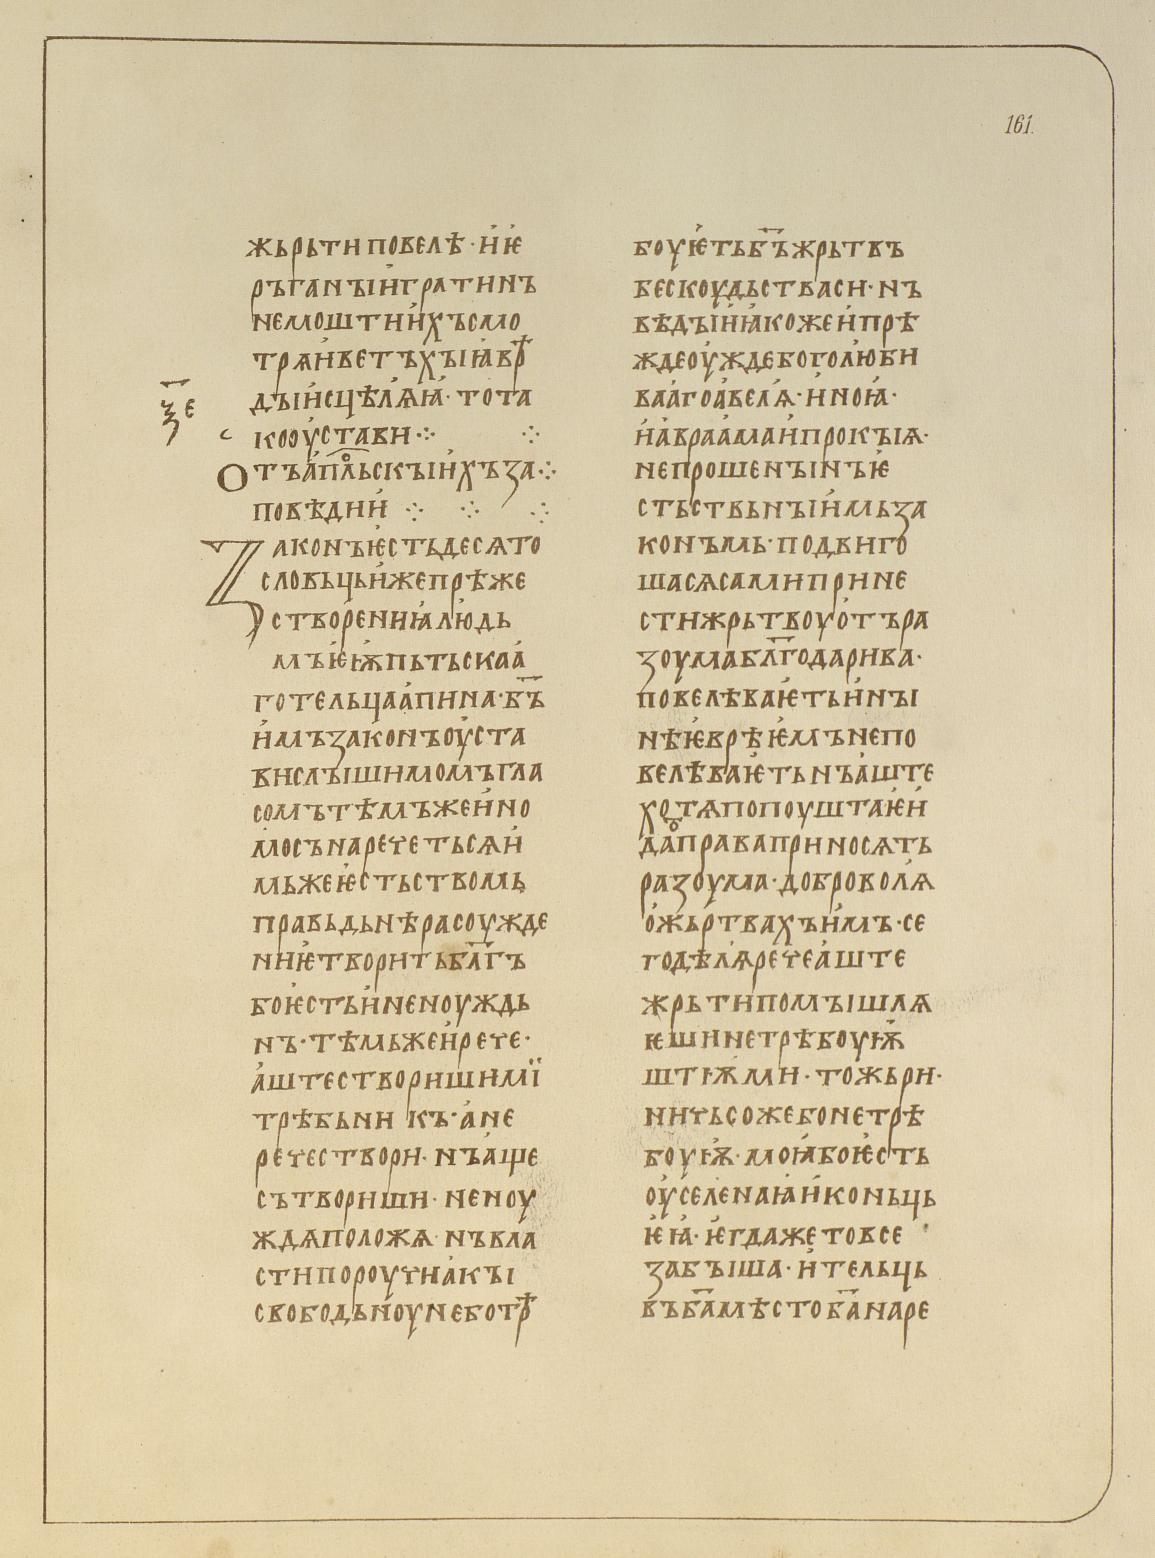 161.
жьрьти повелѣ · и҆ ѥ҆
рѣганꙑ и҆гратинъ
немоштии҆хъ съмо
трѧ и҆ ветъхꙑꙗ҆ вр҇ѣ
дꙑ и҆сцѣлꙗѧ҆ · то та
ко оу҆стави ·:·
з҃е
отъ а҆п҃льскꙑи҆хъ за ·:·
повѣдии҆ ·:· ·:· ·:·
законъ ѥ҆сть десѧто
словьць и҆же прѣже
створениꙗ҆ людь
мъ ѥ҆ѭ҆пьтьскаа҆
го тельца а҆пина · б҃ъ
и҆мъ законъ оу҆ста
ви слꙑшимомъ гла
сомъ тѣмъже и҆ но
мосъ наречетьсѧ и҆
мьже ѥ҆стьствомь
правьдьнѣ расоужде
ниѥ҆ творить бл҃гъ
бо ѥ҆сть и҆ не ноуждь
нъ · тѣмьже и҆ рече ·
а҆ште створиши мї
трѣбьникъ · а҆ не
рече створи · нъ а҆ще
сътвориши · не ноу
ждѧ положѧ · нъ вла
сти пороучи а҆кꙑ
свободьноу не бо тр҇ѣ
боуѥ҆ть б҃ъ жрьтвъ
бес коудьства си · нъ
вѣдꙑи҆ ꙗ҆коже и҆ прѣ
жде оу҆жде боголюби
ваа҆го а҆велѧ · и҆ ноꙗ҆ ·
и҆ а҆враа҆ма и҆ прокꙑꙗ ·
не прошенꙑ нъ ѥ҆
стьствьнꙑи҆мь за
конъмь · подвиго
шасѧ сами прине
сти жрьтвоу о҆тъ ра
зоума бл҃годарива ·
повелѣваѥ҆ть и҆ нꙑ
нѣ ѥ҆врѣѥ҆мъ не по
велѣваѥ҆ть нъ а҆ште
хотѧ попоуштаѥ҆ и҆
да права приносѧть
разоума · доброволѧ
о҆ жьртвахъ и҆мъ · се
годѣлѧ рече а҆ште
жрьти помꙑшлѧ
ѥши не трѣбоую҆ѭ
штѭ҆ ми · то жьри ·
ничьсоже бо не трѣ
боуѭ҆ · моꙗ҆ бо ѥ҆сть
оу҆селенаꙗ҆ и҆ коньць
ѥ҆ꙗ҆ · ѥ҆гда же то все
забꙑша · и҆ тельць
въ б҃а мѣсто б҃а наре